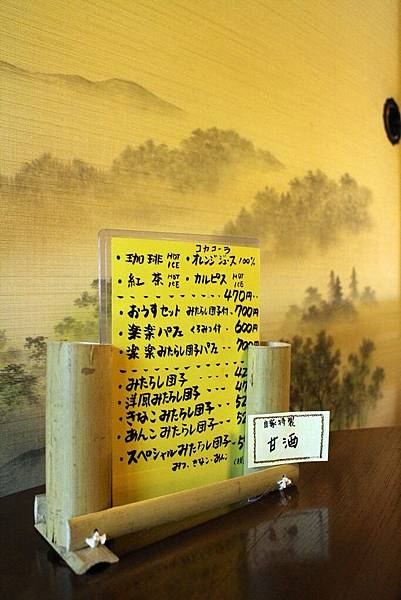 コカコーラ
・珈琲 HOT ICE ・オレンジジュース 100%
・紅茶 HOT ICE ・カルピス HOT ICE
470円
・おうすセット みたらし団子付 700円
・楽楽パフェ くるみつ付 600円
・楽楽みたらし団子パフェ 700
・みたらし団子
・洋風みたらし団子
・きなこみたらし団子
・あんこみたらし団子
・スペシャルみたらし団子
みつ、きなこ・あんこ
自家特製
甘酒